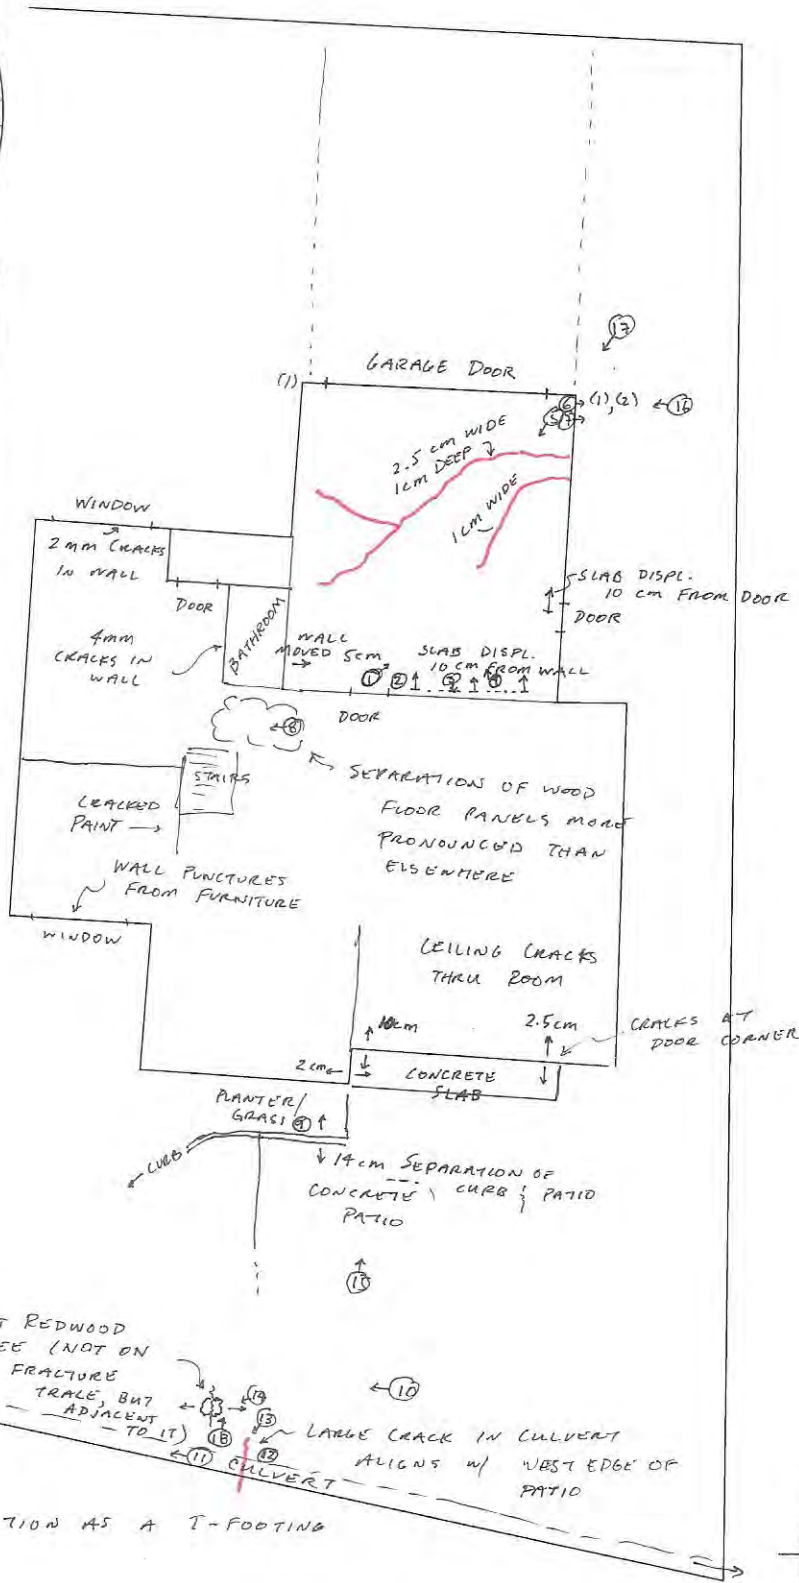 17
GARAGE DOOR
(1)
6 (1), (2) 16
5 7
2.5 cm WIDE
1 cm DEEP
1 cm WIDE
WINDOW
2 mm CRACKS
IN WALL
DOOR
BATHROOM
4mm
CRACKS IN
WALL
SLAB DISPL.
10 cm FROM DOOR
DOOR
WALL
MOVED 5cm
SLAB DISPL.
10 cm FROM WALL
1 2 3 4
DOOR
8
STAIRS
SEPARATION OF WOOD
FLOOR PANELS MORE
PRONOUNCED THAN
ELSEWHERE
CRACKED
PAINT
WALL PUNCTURES
FROM FURNITURE
WINDOW
CEILING CRACKS
THRU ROOM
10cm
2.5cm
CRACKS AT
DOOR CORNER
2cm
CONCRETE
SLAB
PLANTER/
GRASS 9
CURB
14cm SEPARATION OF
CONCRETE CURB & PATIO
PATIO
15
REDWOOD
(NOT ON
FRACTURE
TRACE, BUT
ADJACENT
TO IT)
10
14
13
18
11
12
CULVERT
LARGE CRACK IN CULVERT
ALIGNS W/ WEST EDGE OF
PATIO
AS A T-FOOTING